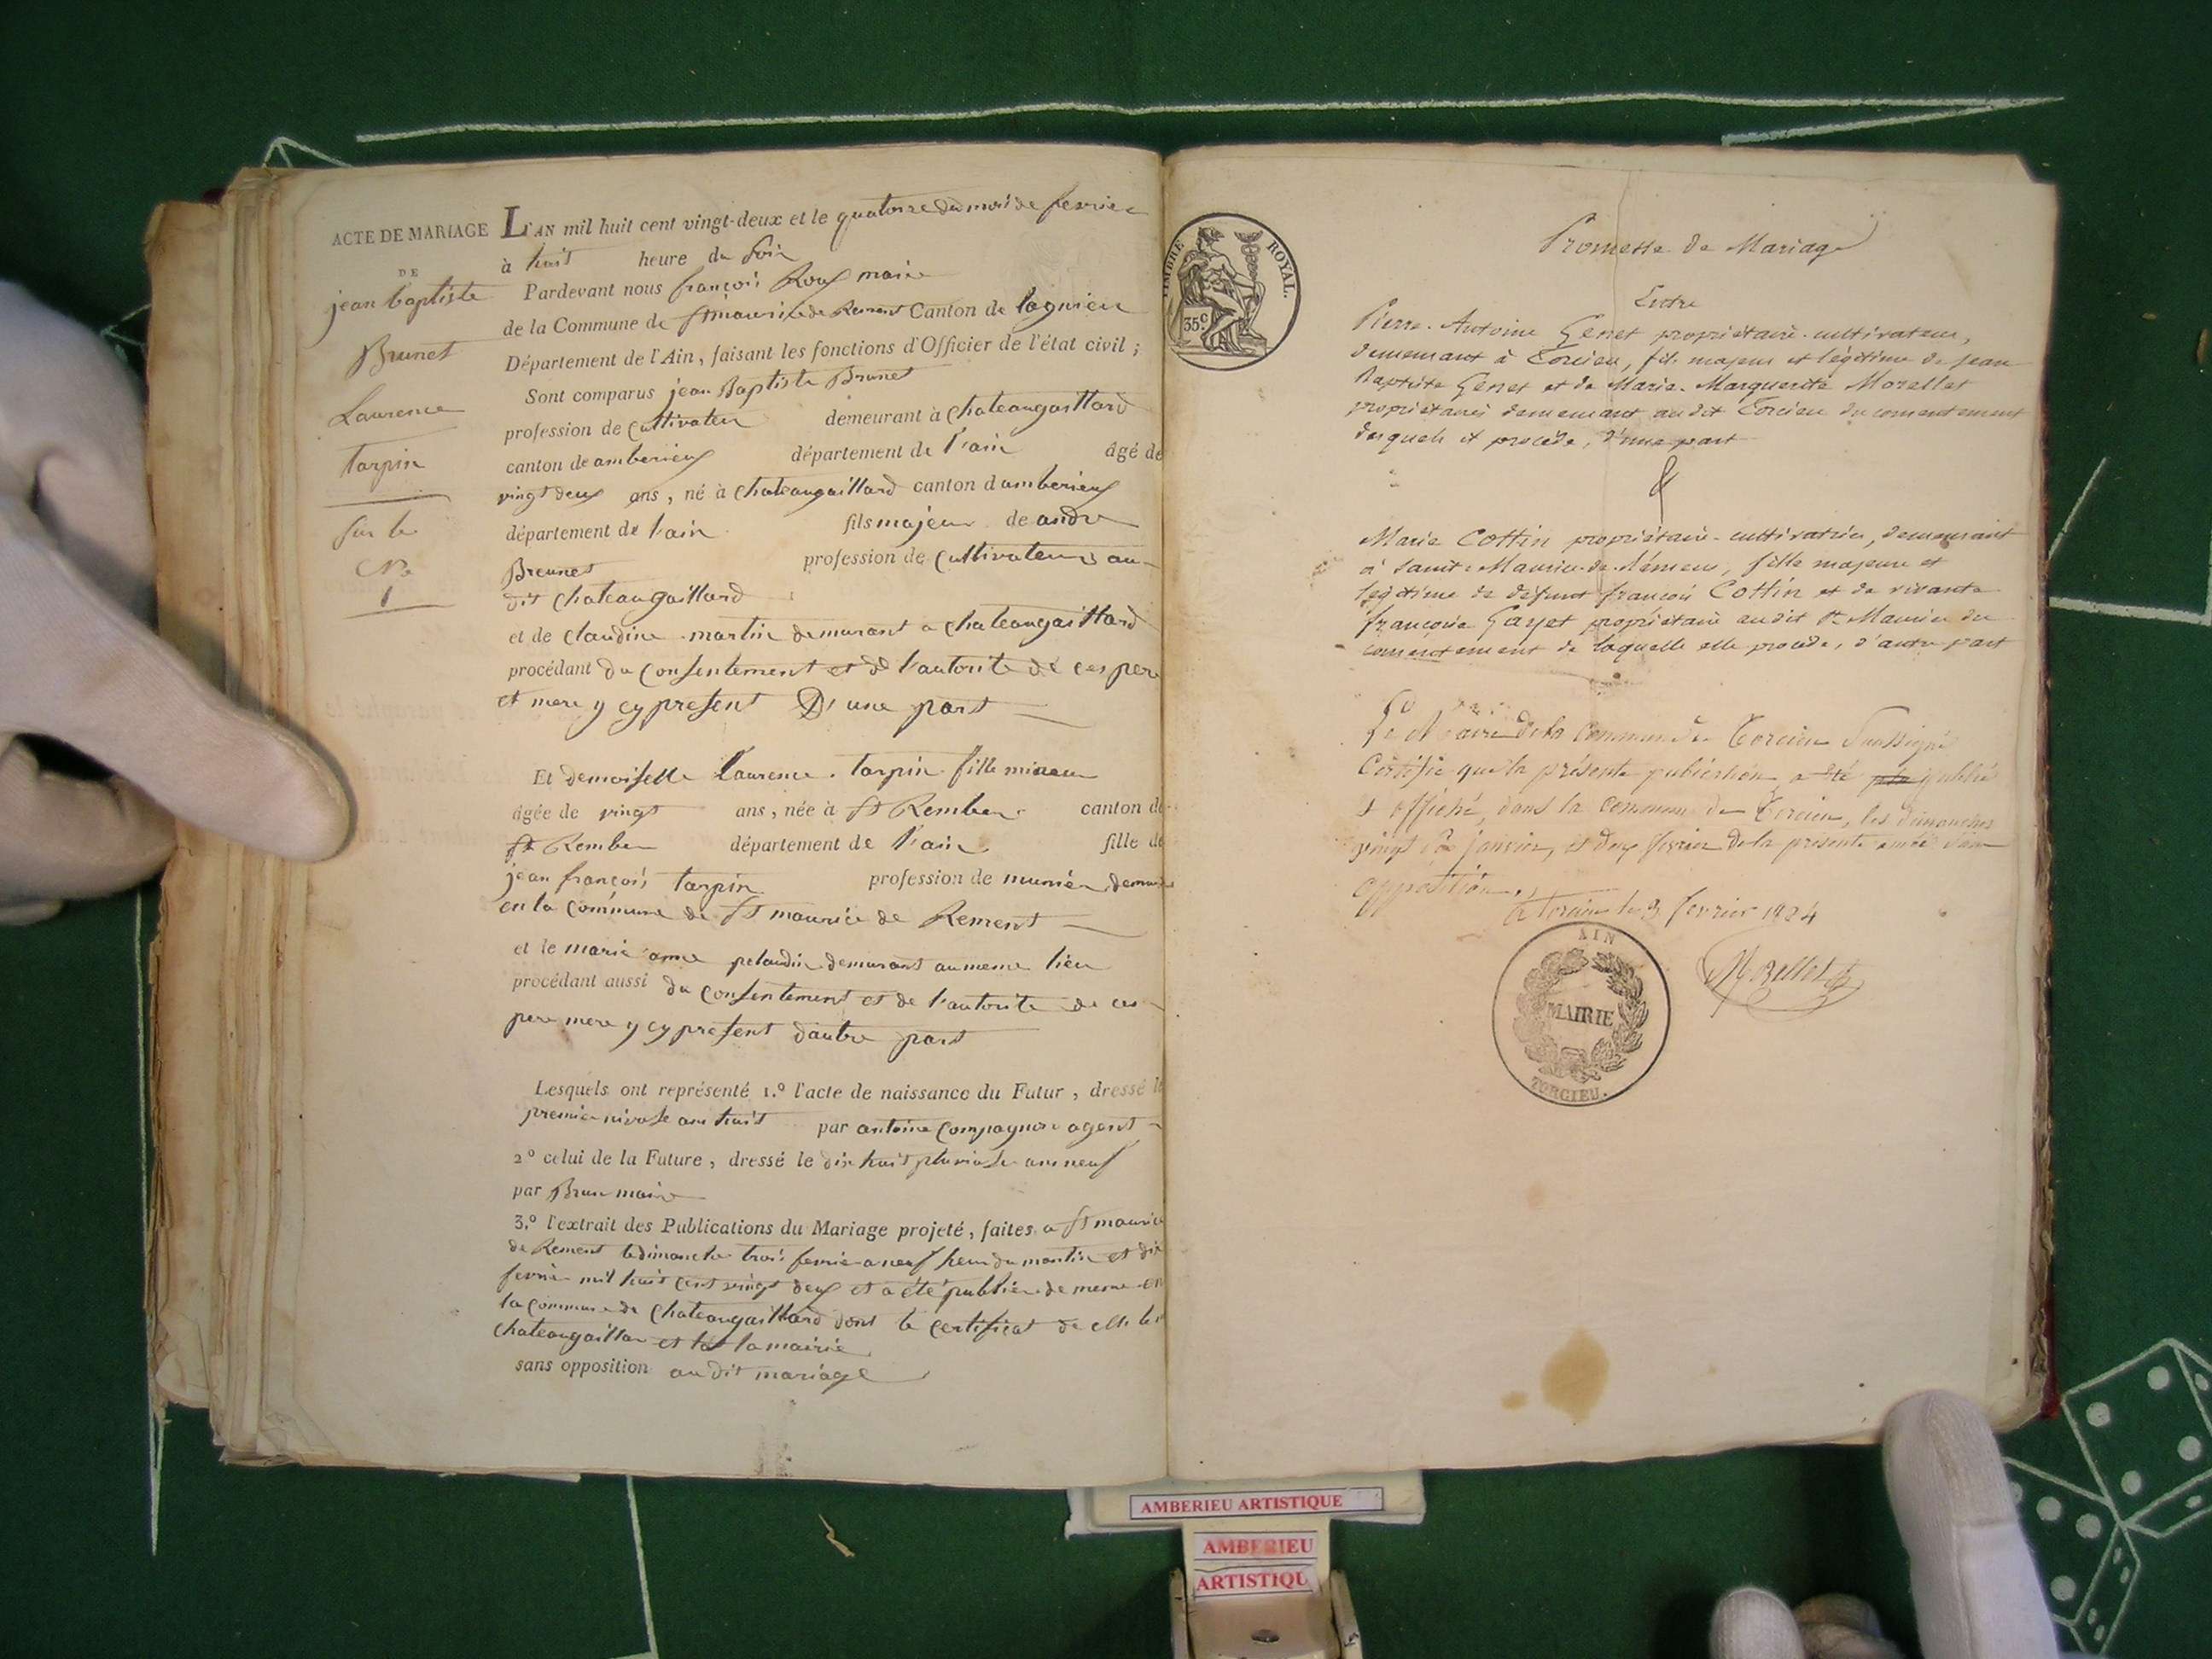 ACTE DE MARIAGE
DE
jean baptiste
Brunet
Laurence
tarpin
sur le
No
1
L'AN mil huit cent vingt-deux et le quatorze du mois de fevrier
à huit heure du soir
Pardevant nous françois Roux maire
de la Commune de st maurice de Rement Canton de lagnieu
Département de l'Ain, faisant les fonctions d'Officier de l'état civil ;
Sont comparus jean Baptiste Brunet
profession de Cultivateur demeurant à chateaugaillard
canton de amberieux département de l'ain âgé de
vingt deux ans, né à chateaugaillard canton d'amberieux
département de l'ain fils majeur de andre
Breunet profession de Cultivateurs au-
dit chateaugaillard
et de claudine martin demurant a chateaugaillard
procédant du consentement et de l'autorite de ces pere
et mere y cy present D'une part
Et demoiselle laurence tarpin fille mineur
âgée de vingt ans, née à st Rember canton de
st Rember département de l'ain fille de
jean françois tarpin profession de munier demur
en la commune de st maurice de Rement
et le marie anne pelaudin demurant au meme lieu
procédant aussi du consentement et de l'autorite de ces
pere mere y cy present dautre part
Lesquels ont représenté 1.º l'acte de naissance du Futur, dressé le
premier nivose an huit par antoine Compagnon agent
2º celui de la Future, dressé le dix huit pluviose an neuf
par Brun maire
3.º l'extrait des Publications du Mariage projeté, faites a st maurice
de Rement le dimanche trois fevrie a neuf heur du mantin et dix
fevrie mil huit cent vingt deux et a été publiée de meme en
la commune de chateaugaillard dont le certificat de
chateaugaillar et la mairie
sans opposition au dit mariage
TIMBRE ROYAL.
35 c
Promesse de Mariage
Entre
Pierre-Antoine Genet propriétaire-cultivateur,
demeurant à Torcieu, fils majeur et légitime de Jean
Baptiste Genet et de Marie-Marguerite Morellet
propriétaires demeurant audit Torcieu du consentement
desquels il procède, d'une part
&
Marie Cottin propriétaire-cultivatrice, demeurant
à Saint-Maurice-de-Rémens, fille majeure et
légitime de défunt françois Cottin et de vivante
françoise Gayet propriétaire audit St Maurice du
consentement de laquelle elle procède, d'autre part
Le Maire de la Commune de Torcieu Soussigné
Certifie que la présente publication a été publié
et affiché, dans la commune de Torcieu, les dimanches
vingt janvier, et deux fevrier de la présente année sans
opposition.
A Torcieu le 3 fevrier 1824
Morellet
AIN
MAIRIE
TORCIEU.
AMBERIEU ARTISTIQUE
AMBERIEU
ARTISTIQU